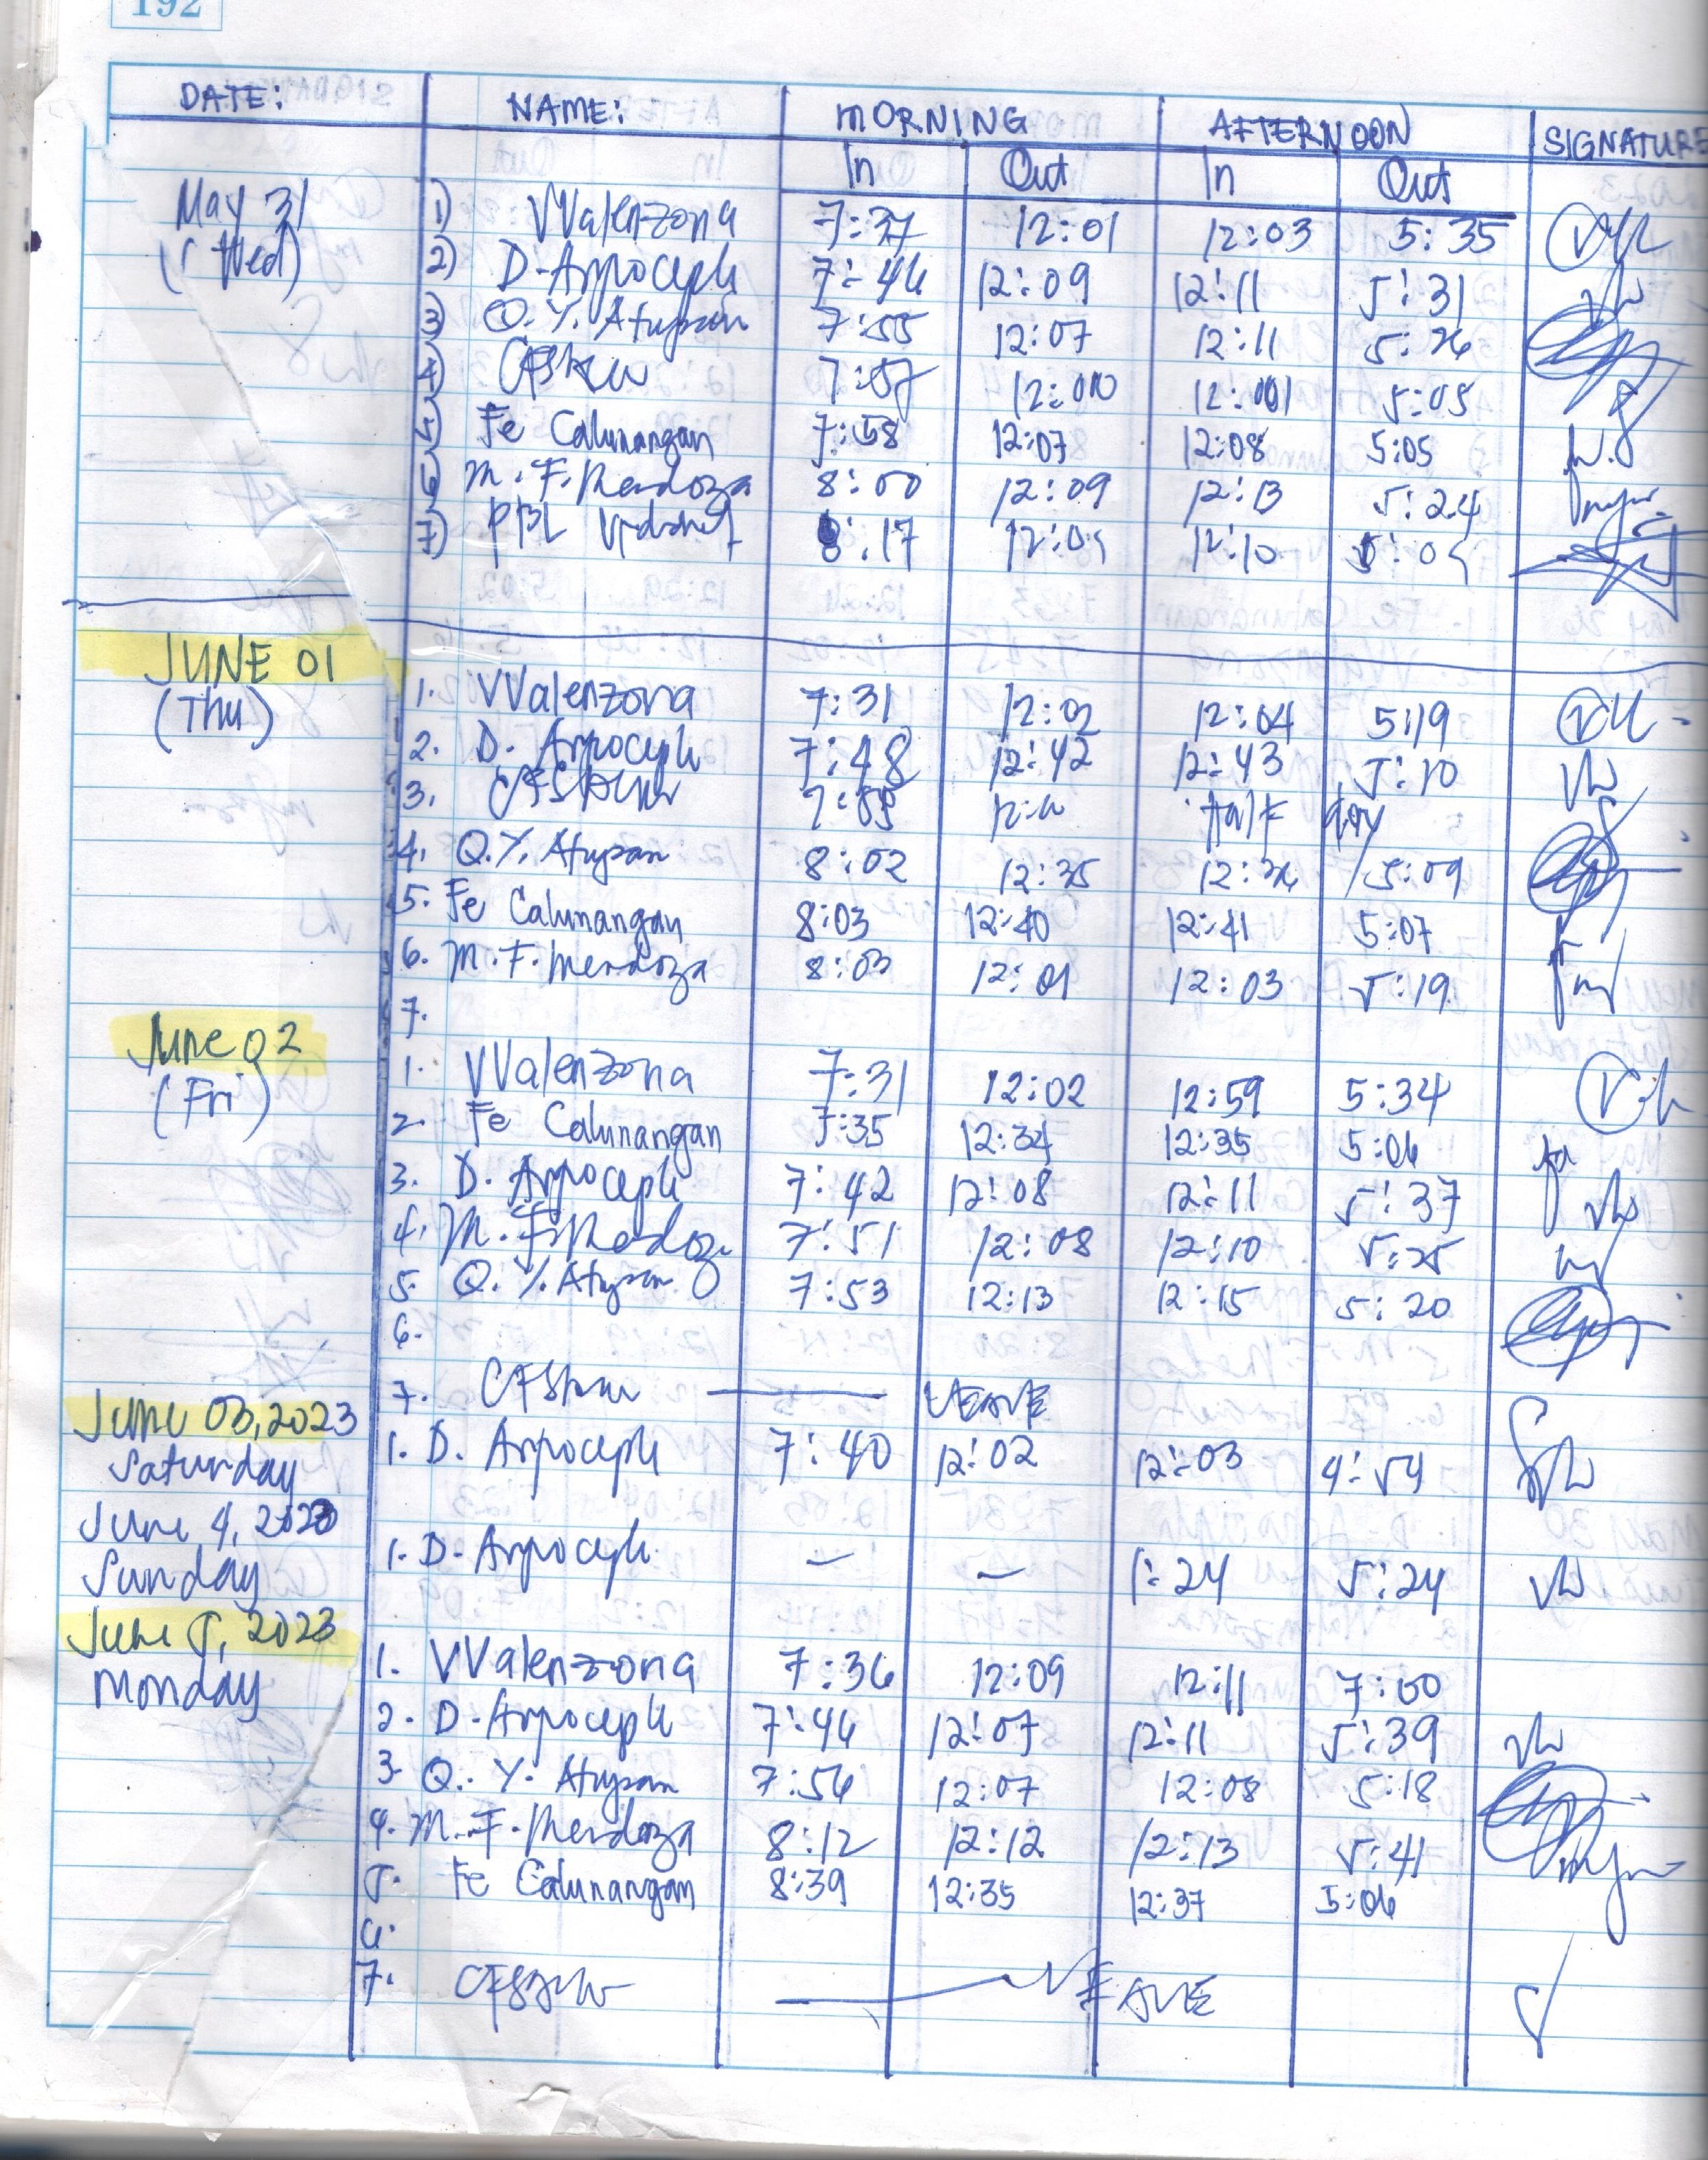 192
DATE: NAME: MORNING AFTERNOON SIGNATURE
In Out In Out
May 31 1) VValenzona 7:37 12:01 12:03 5:35
(Wed) 2) D. Arpoceph 7:46 12:09 12:11 5:31
3) Q. Y. Atupan 7:55 12:07 12:11 5:26
4) 12:00 12:01 5:05
Fe Calunangan 7:58 12:07 12:08 5:05
6) M. F. Mendoza 8:00 12:09 12:13 5:24
7) 8:17 12:10
JUNE 01
(Thu) 1. VValenzona 7:31 12:02 12:04 5:19
2. D. Arpoceph 7:48 12:42 12:43 5:10
3. Half day
4. Q.Y. Atupan 8:02 12:35 12:36 5:09
5. Fe Calunangan 8:03 12:40 12:41 5:07
6. M. F. Mendoza 8:03 12:01 12:03 5:19
7.
June 02
(Fri) 1. VValenzona 7:31 12:02 12:59 5:34
2. Fe Calunangan 7:35 12:34 12:35 5:06
3. D. Arpoceph 7:42 12:08 12:11 5:37
4. M. F. Mendoza 7:51 12:08 12:10 5:25
5. Q. Y. Atupan 7:53 12:13 12:15 5:20
6.
7. LEAVE
June 03, 2023
Saturday 1. D. Arpoceph 7:40 12:02 12:03 4:54
June 4, 2023
Sunday 1. D. Arpoceph — — 1:24 5:24
June 5, 2023
Monday 1. VValenzona 7:36 12:09 12:11 7:00
2. D. Arpoceph 7:46 12:07 12:11 5:39
3. Q. Y. Atupan 7:56 12:07 12:08 5:18
4. M. F. Mendoza 8:12 12:12 12:13 5:41
5. Fe Calunangan 8:39 12:35 12:37 5:06
6.
7. LEAVE